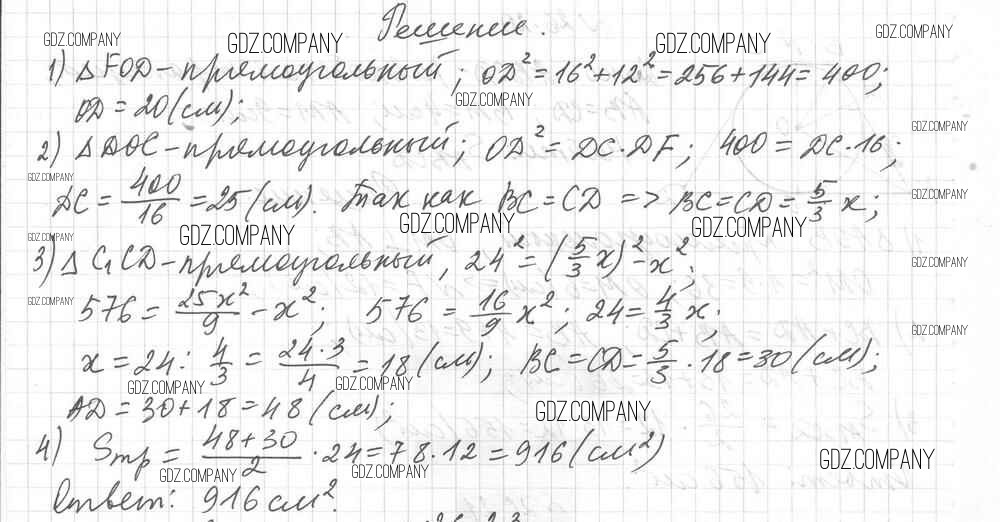 Решение.
GDZ.COMPANY GDZ.COMPANY GDZ.COMPANY GDZ.COMPANY
1) △ FOD - прямоугольный; OD² = 16² + 12² = 256 + 144 = 400;
OD = 20 (см);
GDZ.COMPANY
GDZ.COMPANY
2) △ DOC - прямоугольный; OD² = DC · DF; 400 = DC · 16;
GDZ.COMPANY GDZ.COMPANY
DC = 400/16 = 25 (см). Так как BC = CD => BC = CD = 5/3 x;
GDZ.COMPANY GDZ.COMPANY GDZ.COMPANY GDZ.COMPANY
3) △ C₁CD - прямоугольный, 24² = (5/3 x)² - x²;
GDZ.COMPANY
GDZ.COMPANY
576 = 25x²/9 - x²; 576 = 16/9 x²; 24 = 4/3 x;
GDZ.COMPANY
x = 24 : 4/3 = 24·3/4 = 18 (см); BC = CD = 5/3 · 18 = 30 (см);
GDZ.COMPANY GDZ.COMPANY
AD = 30 + 18 = 48 (см);
GDZ.COMPANY
4) Sтр = 48+30/2 · 24 = 78 · 12 = 916 (см²)
GDZ.COMPANY GDZ.COMPANY GDZ.COMPANY
Ответ: 916 см².